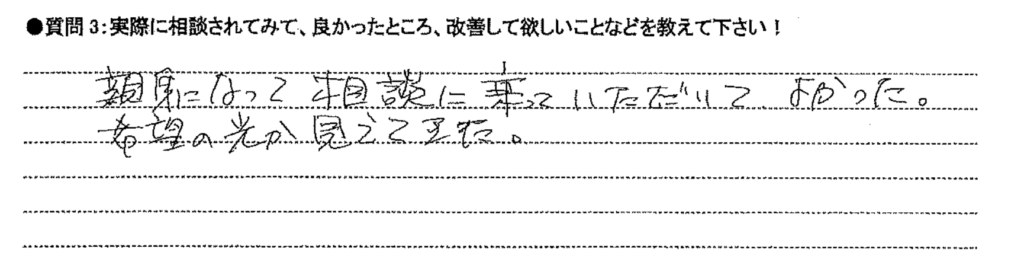 ●質問3:実際に相談されてみて、良かったところ、改善して欲しいことなどを教えて下さい!
親身になって相談に乗っていただいて、よかった。
希望の光が見えてきた。